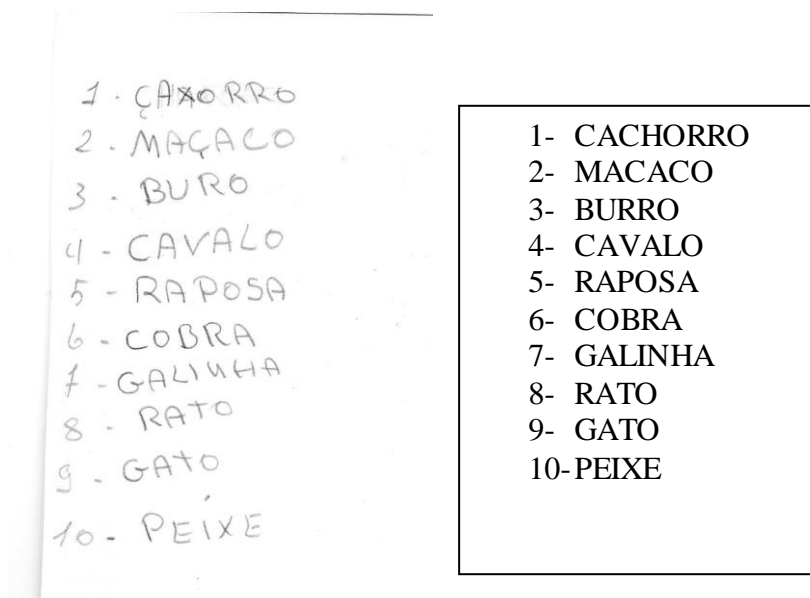 1 - ÇAXORRO
2 - MAÇACO
3 - BURO
4 - CAVALO
5 - RAPOSA
6 - COBRA
7 - GALINHA
8 - RATO
9 - GATO
10 - PEIXE
1- CACHORRO
2- MACACO
3- BURRO
4- CAVALO
5- RAPOSA
6- COBRA
7- GALINHA
8- RATO
9- GATO
10- PEIXE